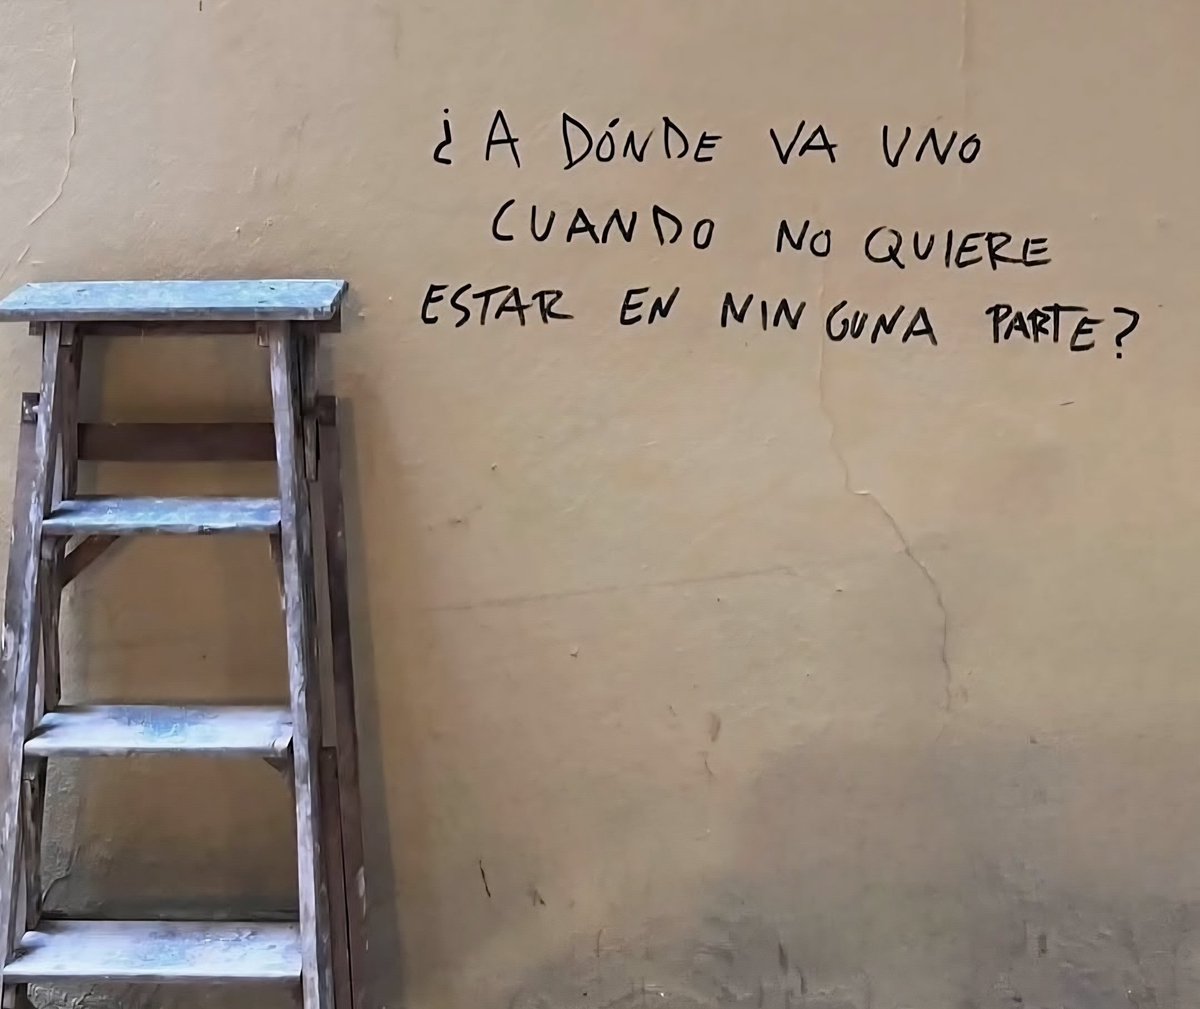 ¿A DÓNDE VA UNO
CUANDO NO QUIERE
ESTAR EN NINGUNA PARTE?